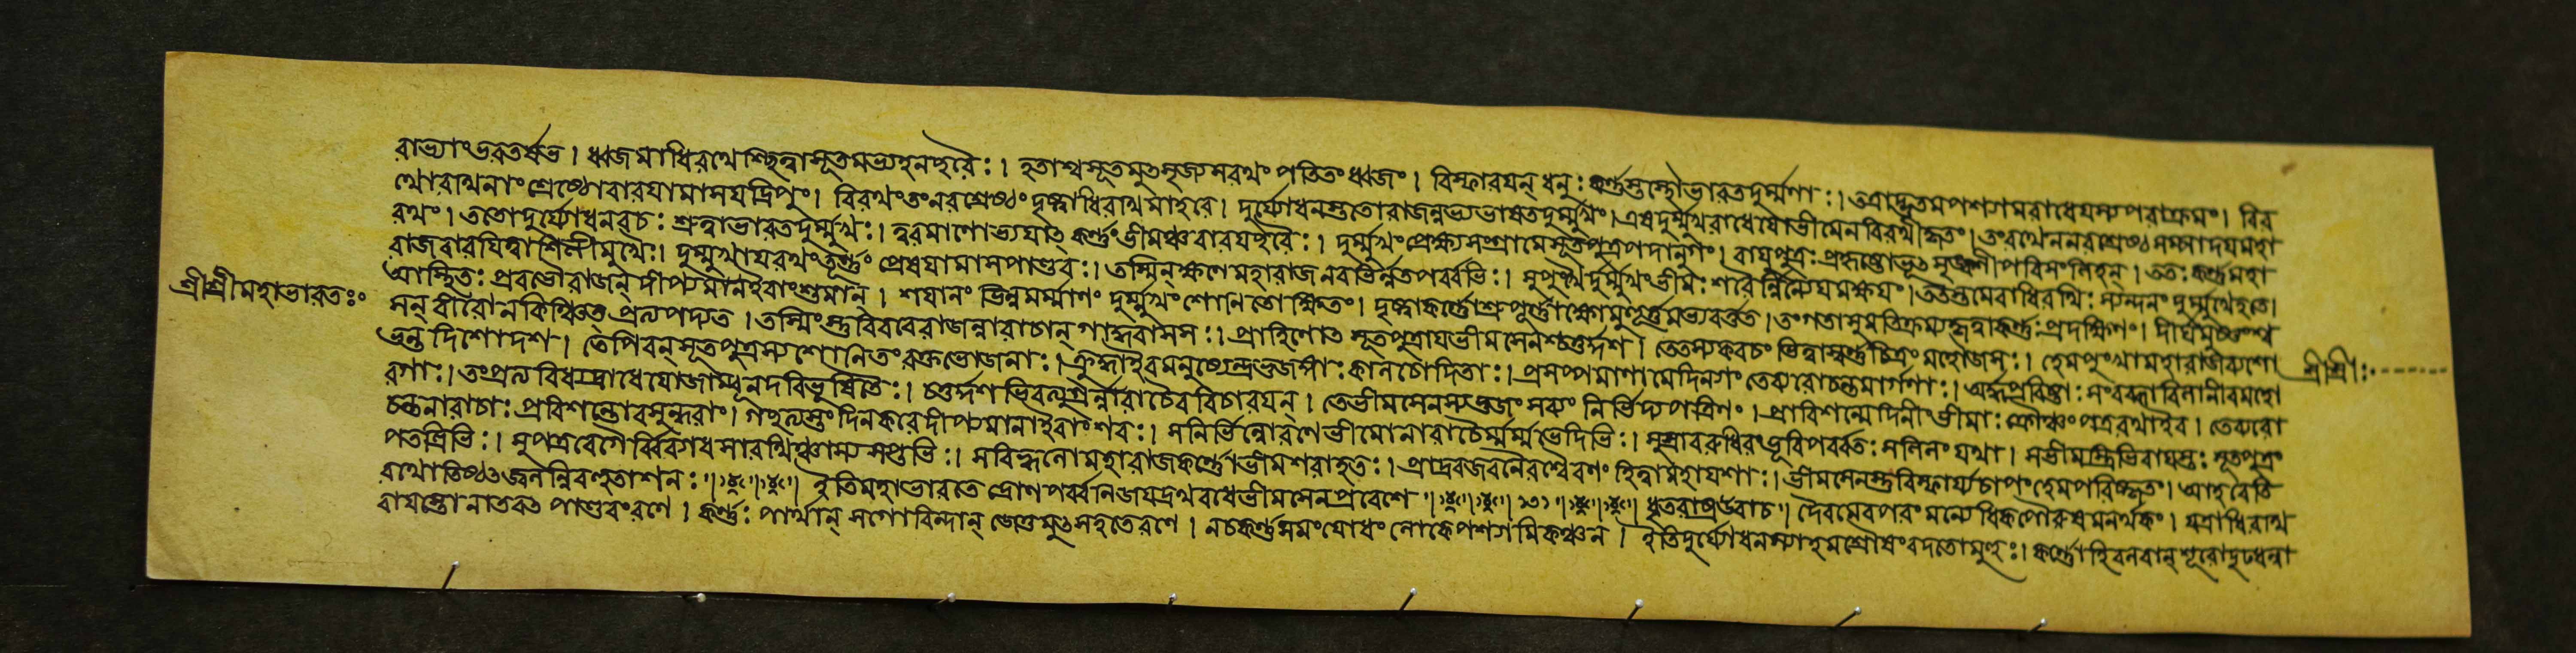 রাভ্যাংভরতর্ষভ। ধ্বজমাধিরথেশ্ছিত্বাসূতমভ্যহনচ্ছরৈঃ। হতাশ্বসূতমুৎসৃজ্যসরথং পতিতংধ্বজং। বিস্ফারযন্ ধনুঃ কর্ণ্ণস্তস্থৌভারতদুর্ম্মণাঃ। তত্রাদ্ভুতমপশ্যামরাধেযস্যপরাক্রমং। বির
থোরথিনাং শ্রেষ্ঠোবারযামাসযদ্রিপুং। বিরথংতংনরশ্রেষ্ঠং দৃষ্ট্বাধিরথিমাহবে। দুর্য্যোধনস্ততোরাজন্নভ্যভাষতদুর্ম্মুখং। এষদুর্ম্মুখরাধেযোভীমেনবিরথীকৃতঃ। তংরথেননরশ্রেষ্ঠ সম্পাদযমহা
রথং। ততোদুর্য্যোধনবচঃ শ্রুত্বাভারতদুর্ম্মুখঃ। ত্বরমাণোভ্যযাৎ কর্ণ্ণংভীমঞ্চবারযচ্ছরৈঃ। দুর্ম্মুখংপ্রেক্ষ্যসংগ্রামেসূতপুত্রপদানুগং। বাযুপুত্রঃ প্রহৃষ্টোভূৎ সৃক্কণীপরিসংলিহন্। ততঃ কর্ণ্ণংমহা
রাজবারযিত্বাশিলীমুখৈঃ। দুর্ম্মুখাযরথংতূর্ণ্ণং প্রেষযামাসপাণ্ডবঃ। তস্মিন্ ক্ষণেমহারাজনবভির্নতপর্ব্বভিঃ। সুপুঙ্খৈর্দুর্ম্মুখংভীমঃ শরৈর্ন্নিন্যেযমক্ষযং। ততস্তমেবাধিরথিঃ স্যন্দনং দুর্ম্মুখেহতে।
আস্থিতঃ প্রবভৌরাজন্ দীপ্যমানইবাংশুমান্। শযানং ভিন্নমর্ম্মাণং দুর্ম্মুখংশোনিতোক্ষিতং। দৃষ্ট্বাকর্ণ্ণোশ্রুপূর্ণ্ণাক্ষোমুহূর্ত্তমভ্যবর্ত্তত। তংগতাসুমতিক্রম্যকৃত্বাকর্ণ্ণঃ প্রদক্ষিণং। দীর্ঘমুষ্ণংশ্ব
শ্রীশ্রীমহাভারতঃ
সন্ বীরোনকিঞ্চিত্ প্রত্যপদ্যত। তস্মিংস্তুবিবরেরাজন্নারাচান্ গার্দ্ধ্রবাসসঃ। প্রাহিণোৎ সূতপুত্রাযভীমসেনশ্চতুর্দ্দশ। তেতস্যকবচং ভিত্বাস্বর্ণ্ণচিত্রং মহৌজসঃ। হেমপুংখামহারাজব্যশো
ভন্তদিশোদশ। তেপিবন্ সূতপুত্রস্যশোনিতংরক্তভোজনাঃ। ক্রুদ্ধাইবমনুষ্যেন্দ্রভুজঙ্গাঃ কালচোদিতাঃ। প্রসর্পমাণামেদিন্যাং তেব্যরোচন্তমার্গণাঃ। অর্দ্ধপ্রবিষ্টাঃ সংরব্ধাবিলানীবমহো
শ্রীশ্রীঃ
রগাঃ। তংপ্রত্যবিধ্যদ্রাধেযোজাম্বূনদবিভূষিতৈঃ। চতুর্দ্দশভিরত্যুগ্রৈর্ন্নারাচৈরবিচারযন্। তেভীমসেনস্যভুজং সব্যং নির্ভিদ্যপত্রিণঃ। প্রাবিশন্মেদিনীংভীমাঃ ক্রৌঞ্চংপত্ররথাইব। তেব্যরো
চন্তনারাচাঃ প্রবিশন্তোবসুন্ধরাং। গচ্ছত্যস্তংদিনকরেদীপ্যমানাইবাংশবঃ। সনির্ভিন্নোরণেভীমোনারাচৈর্ম্মর্ম্মভেদিভিঃ। সুস্রাবরুধিরংভূরিপর্ব্বতঃ সলিলং যথা। সভীমস্ত্রিভিরাযস্তঃ সূতপুত্রং
পতত্রিভিঃ। সুপর্ণবেগৈর্ব্বিব্যাধসারথিঞ্চাস্য সপ্তভিঃ। সবিহ্বলোমহারাজকর্ণ্ণোভীমশরাহতঃ। প্রাদ্রবজ্জবনৈরশ্বৈরণং হিত্বামহাযশাঃ। ভীমসেনস্তুবিস্ফার্য্যচাপংহেমপরিষ্কৃতং। আহবেতি
রথোতিষ্ঠজ্জ্বলন্নিবহুতাশনঃ॥ ইতিমহাভারতে দ্রোণপর্ব্বনিজযদ্রথবধেভীমসেনপ্রবেশে॥ ১৩১॥ ধৃতরাষ্ট্রউবাচ॥ দৈবমেবপরংমন্যেধিক্পৌরুষমনর্থকং। যত্রাধিরথি
রাযস্তোনাতরৎ পাণ্ডবংরণে। কর্ণ্ণঃ পার্থান্ সগোবিন্দান্ জেতুমুৎসহতেরণে। নচকর্ণ্ণসমংযোধং লোকেপশ্যামিকঞ্চন। ইতিদুর্য্যোধনস্যাহমশ্রৌষংবদতোমুহুঃ। কর্ণ্ণোহিবলবান্ শূরোদৃঢধন্বা